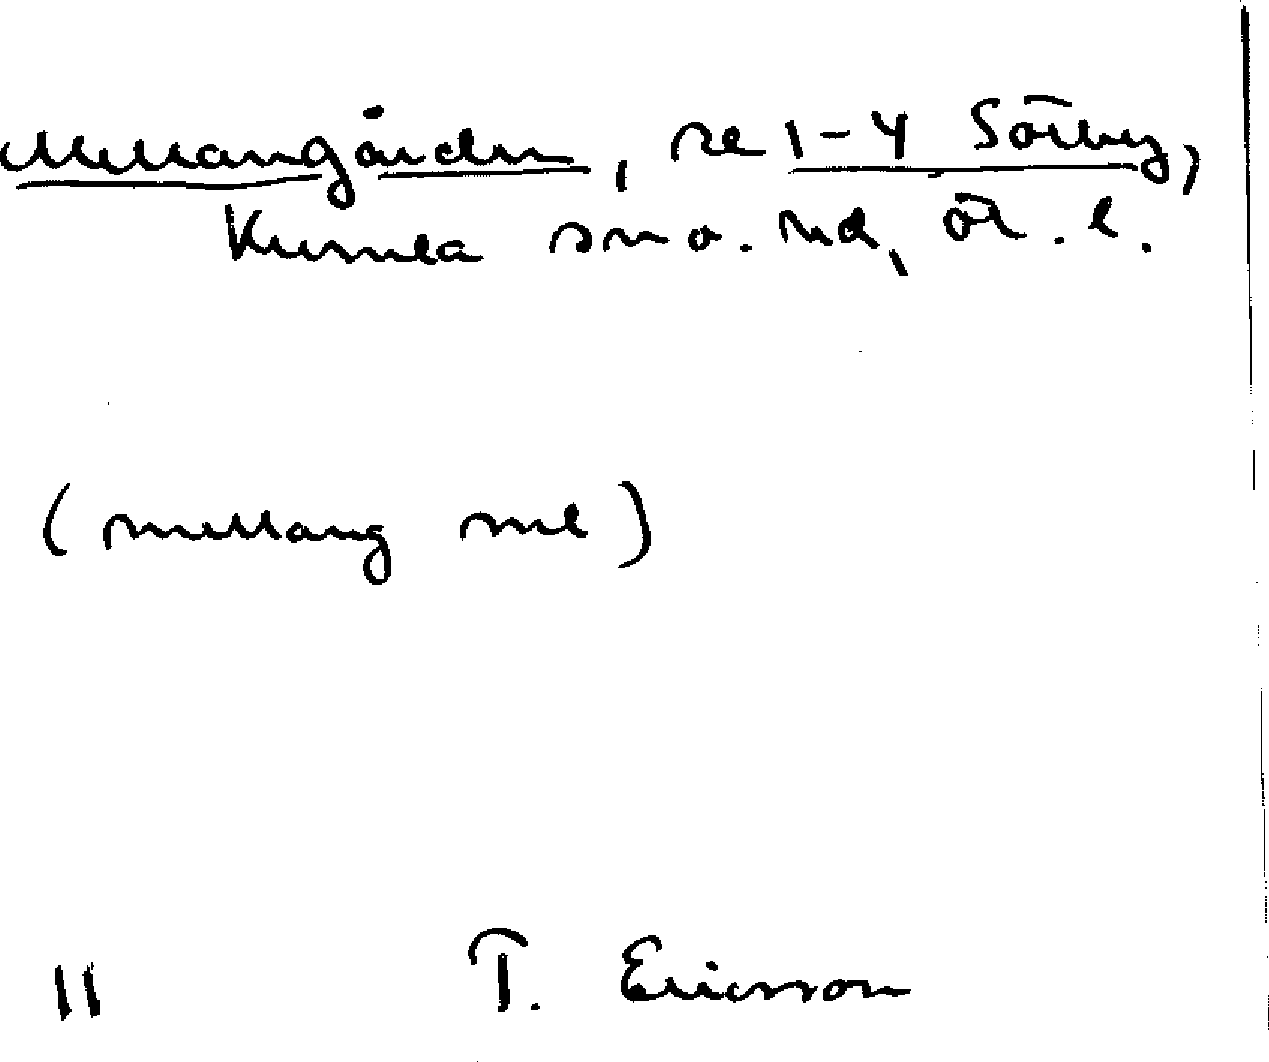 Mellangården, se 1-4 Sörby,
Kumla sn o. hd, ör. l.
(mellang ml)
11 T. Ericsson